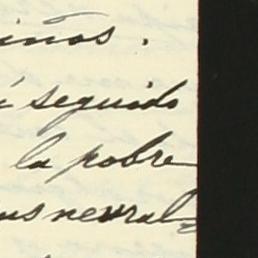 iños.
í seguido
la pobre
us nevral=